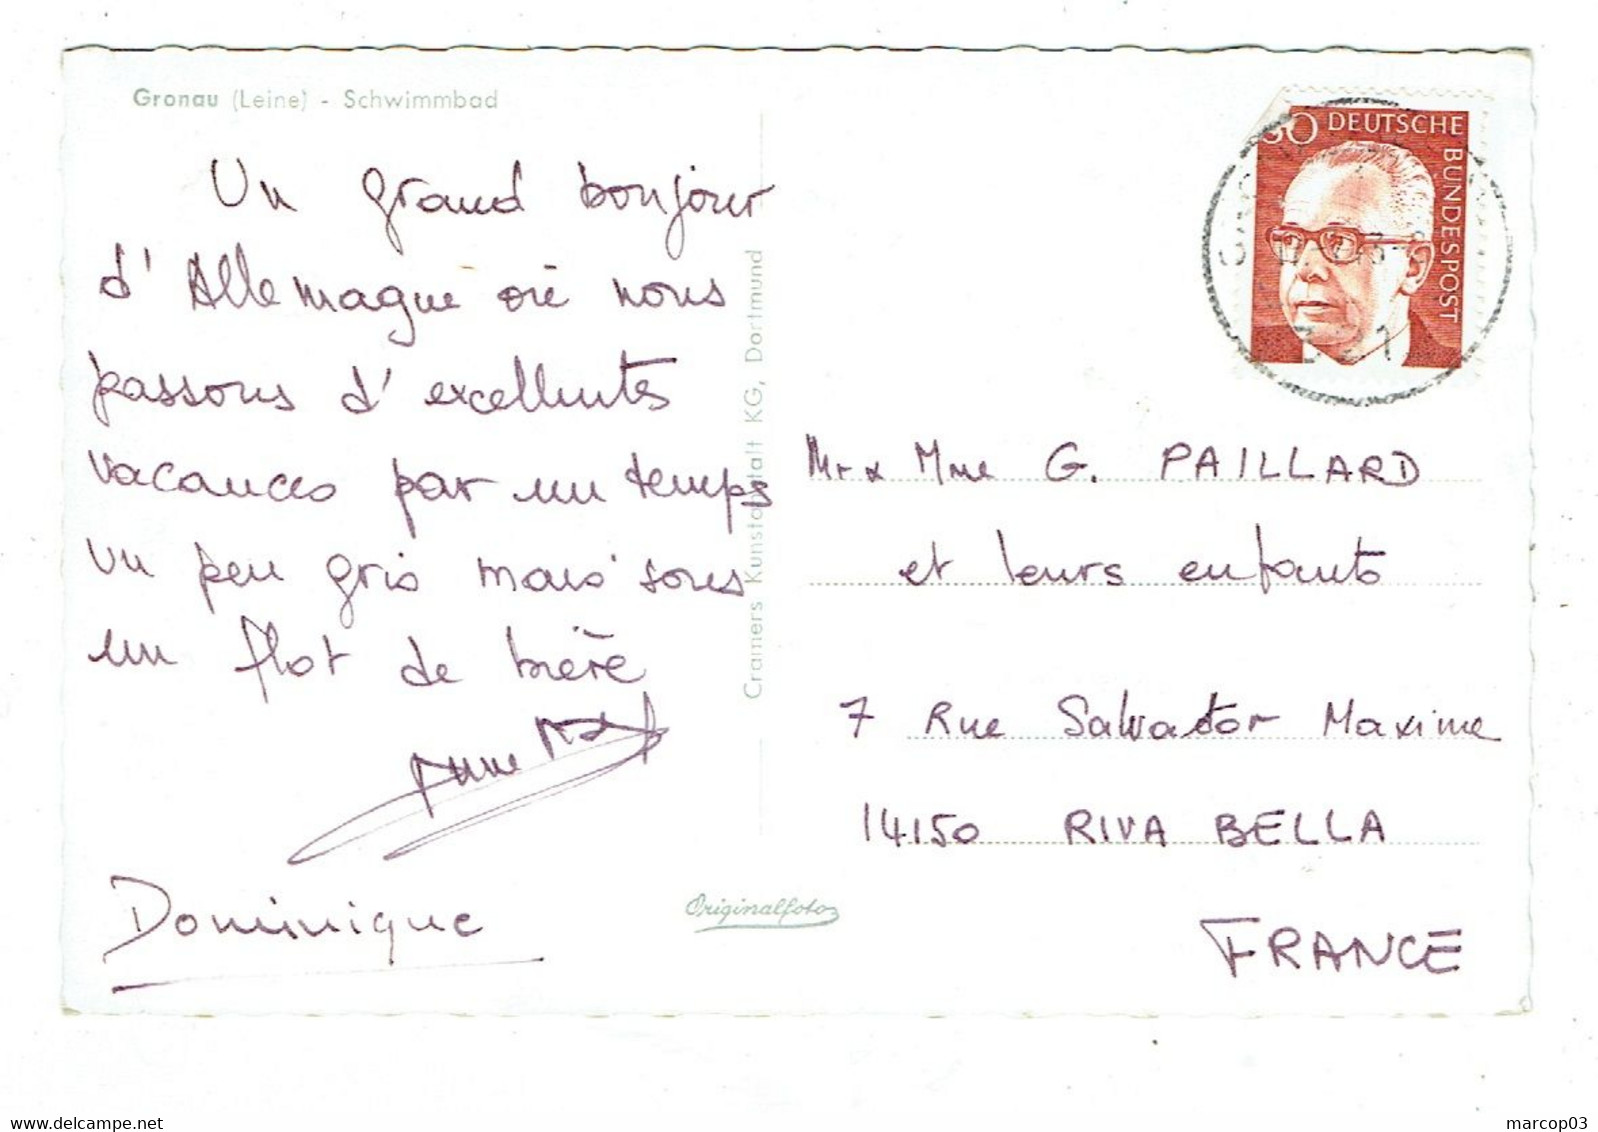 Gronau (Leine) - Schwimmbad
Un grand bonjour
d'Allemagne où nous
passons d'excellentes
vacances par un temps
un peu gris mais sous
un flot de bière
Anne
Dominique
Cramers Kunstanstalt KG, Dortmund
Originalfoto
30 DEUTSCHE
BUNDESPOST
Mr & Mme G. PAILLARD
et leurs enfants
7 Rue Salvador Maxime
14150 RIVA BELLA
FRANCE
marcop03